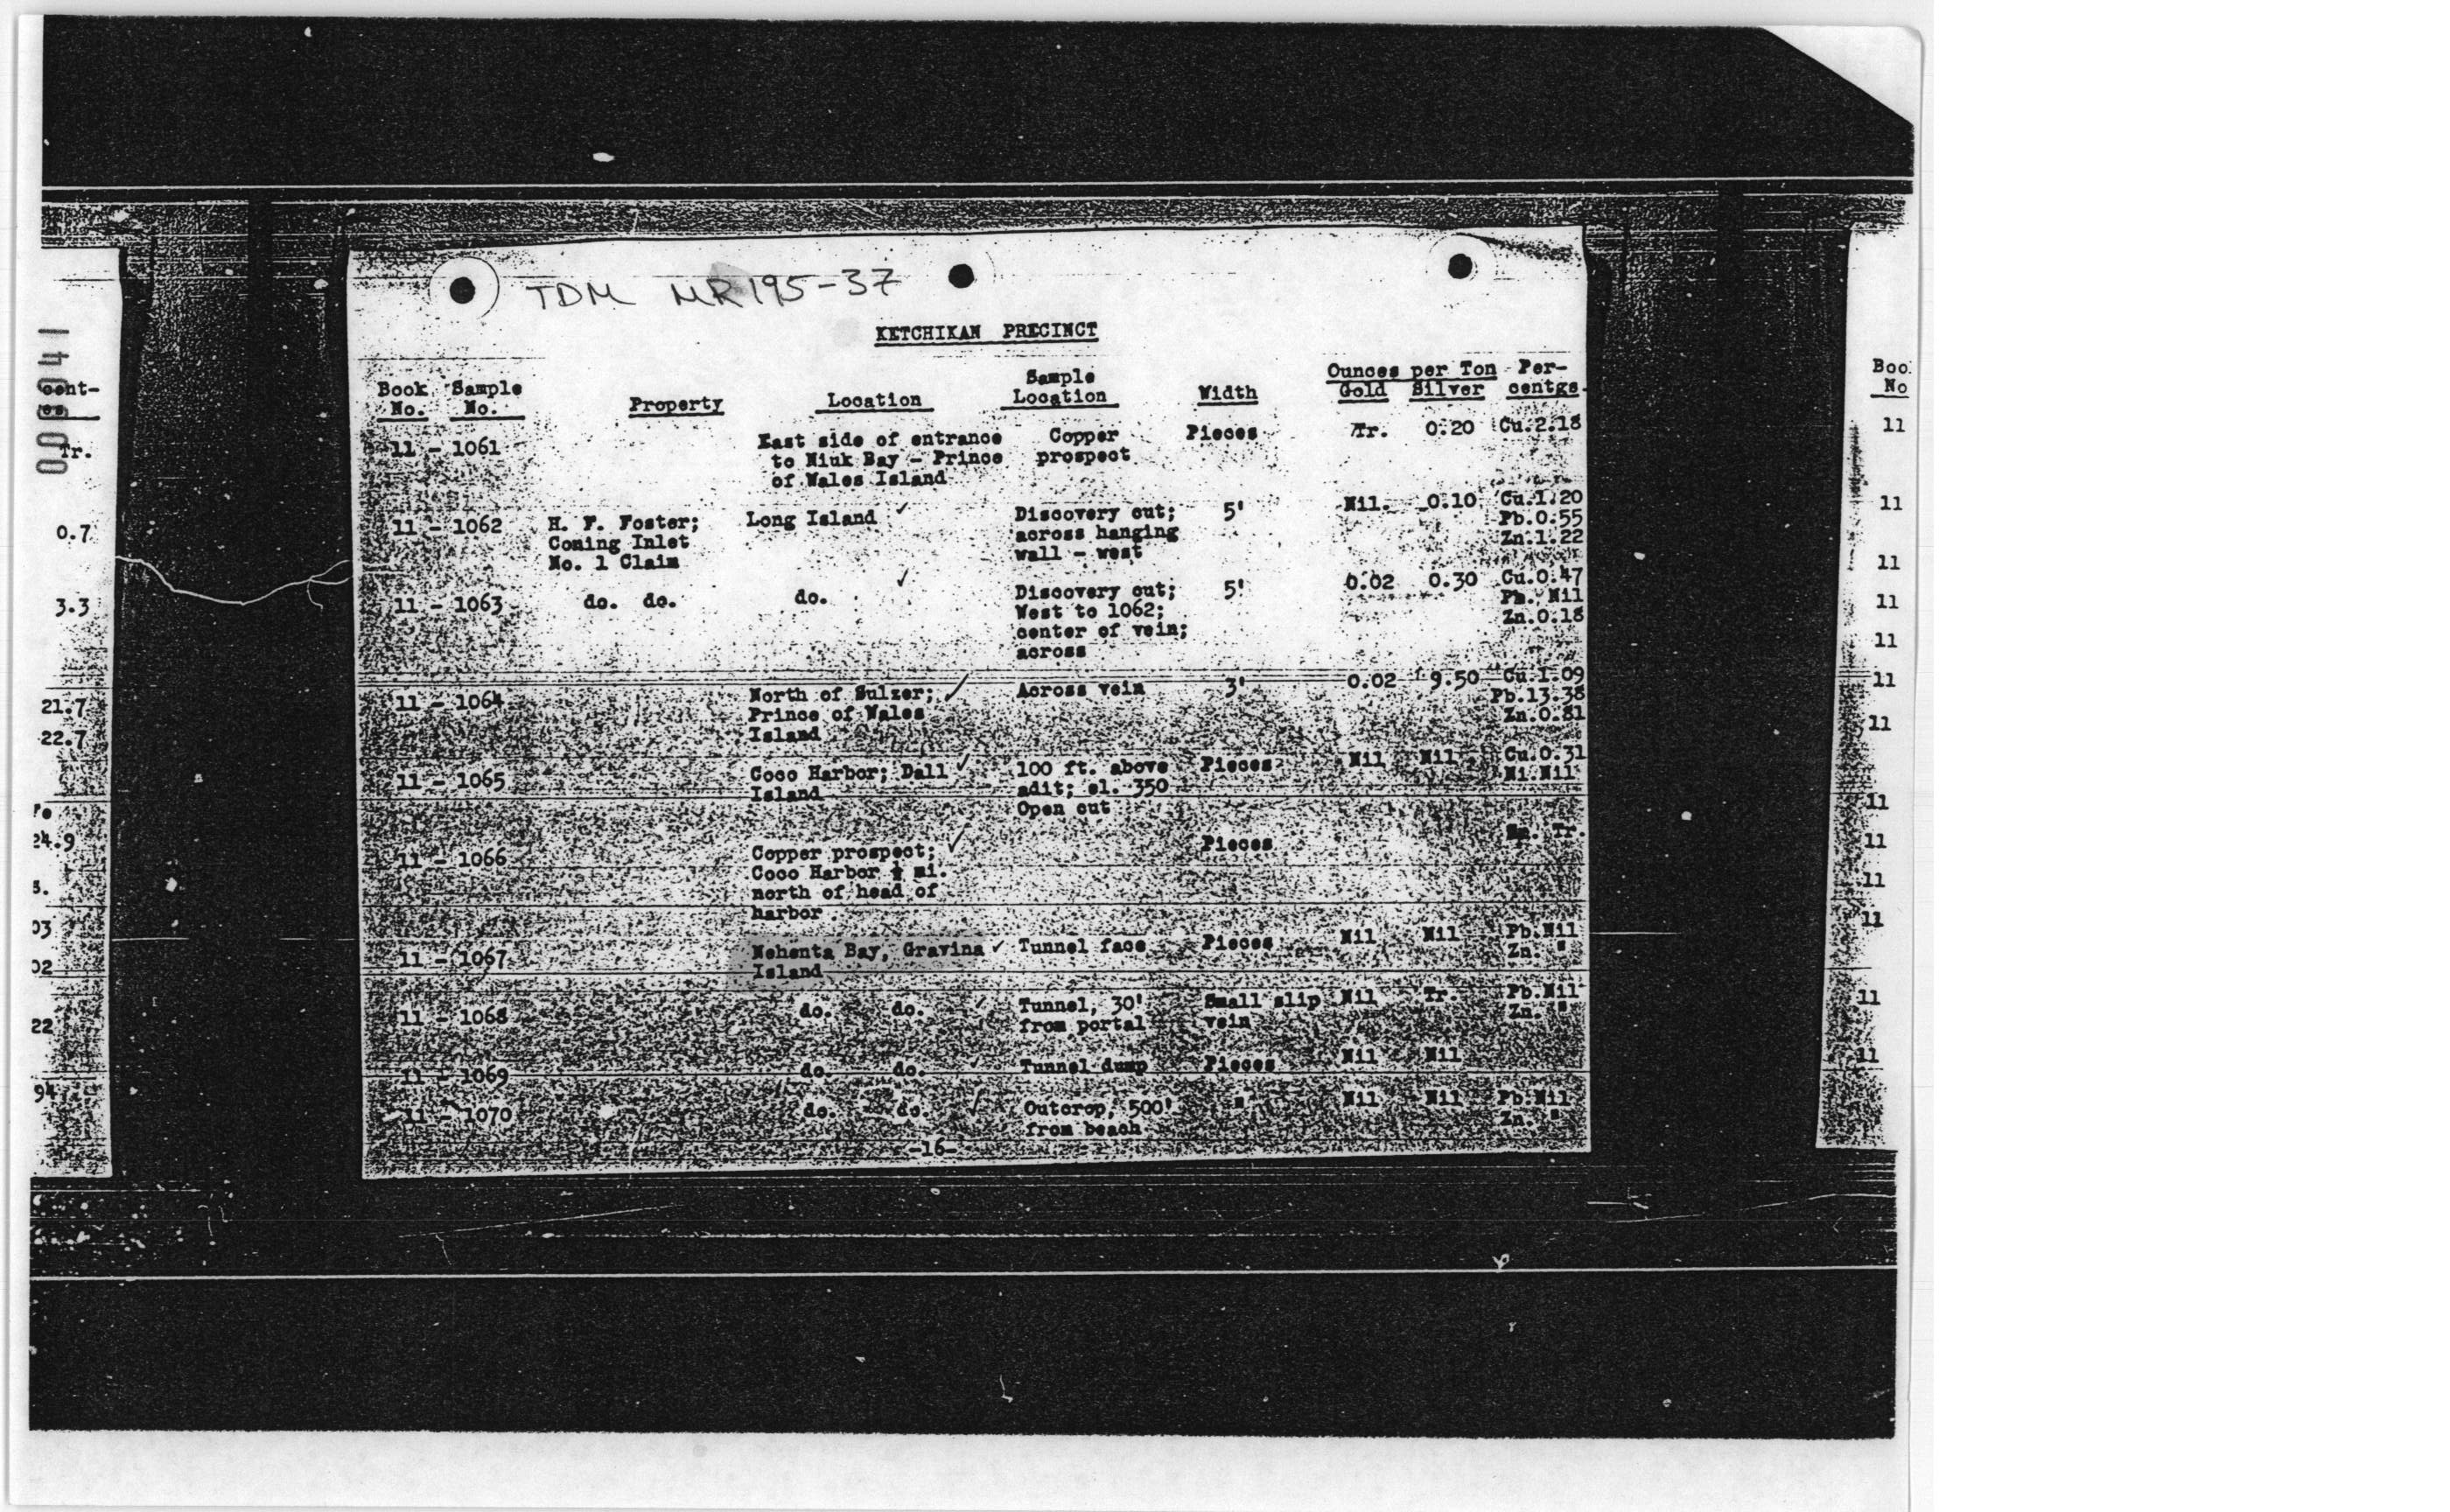 TDM MR195-37
KETCHIKAN PRECINCT
Book Sample Property Location Sample Width Ounces per Ton Per-
No. No. Location Gold Silver centge.
11 - 1061 East side of entrance Copper Pieces Tr. 0.20 Cu.2.18
to Niuk Bay - Prince prospect
of Wales Island
11 - 1062 H. F. Foster; Long Island ✓ Discovery cut; 5' Nil. 0.10 Cu.1.20
Coning Inlet across hanging Pb.0.55
No. 1 Claim wall - west Zn.1.22
11 - 1063 do. do. do. ✓ Discovery cut; 5' 0.02 0.30 Cu.0.47
West to 1062; Pb. Nil
center of vein; Zn.0.18
across
11 - 1064 North of Sulzer; ✓ Across vein 3' 0.02 9.50 Cu.1.09
Prince of Wales Pb.13.38
Island Zn.0.81
11 - 1065 Coco Harbor; Dall ✓ 100 ft. above Pieces Nil Nil Cu.0.31
Island adit; el. 350 Ni.Nil
Open cut
11 - 1066 Copper prospect; ✓ Pieces Tr.
Coco Harbor mi.
north of head of
harbor
11 - 1067 Nehenta Bay, Gravina ✓ Tunnel face Pieces Nil Nil Pb.Nil
Island Zn. "
11 - 1068 do. do. ✓ Tunnel, 30' Small slip Nil Tr. Pb.Nil
from portal vein Zn. "
11 - 1069 do. do. ✓ Tunnel dump Pieces Nil Nil
11 - 1070 do. do. ✓ Outcrop, 500' " Nil Nil Pb.Nil
from beach Zn. "
-16-
00041
cent-
Tr.
0.7
3.3
21.7
22.7
24.9
3.
03
02
22
94
Boo
No
11
11
11
11
11
11
11
11
11
11
11
11
11